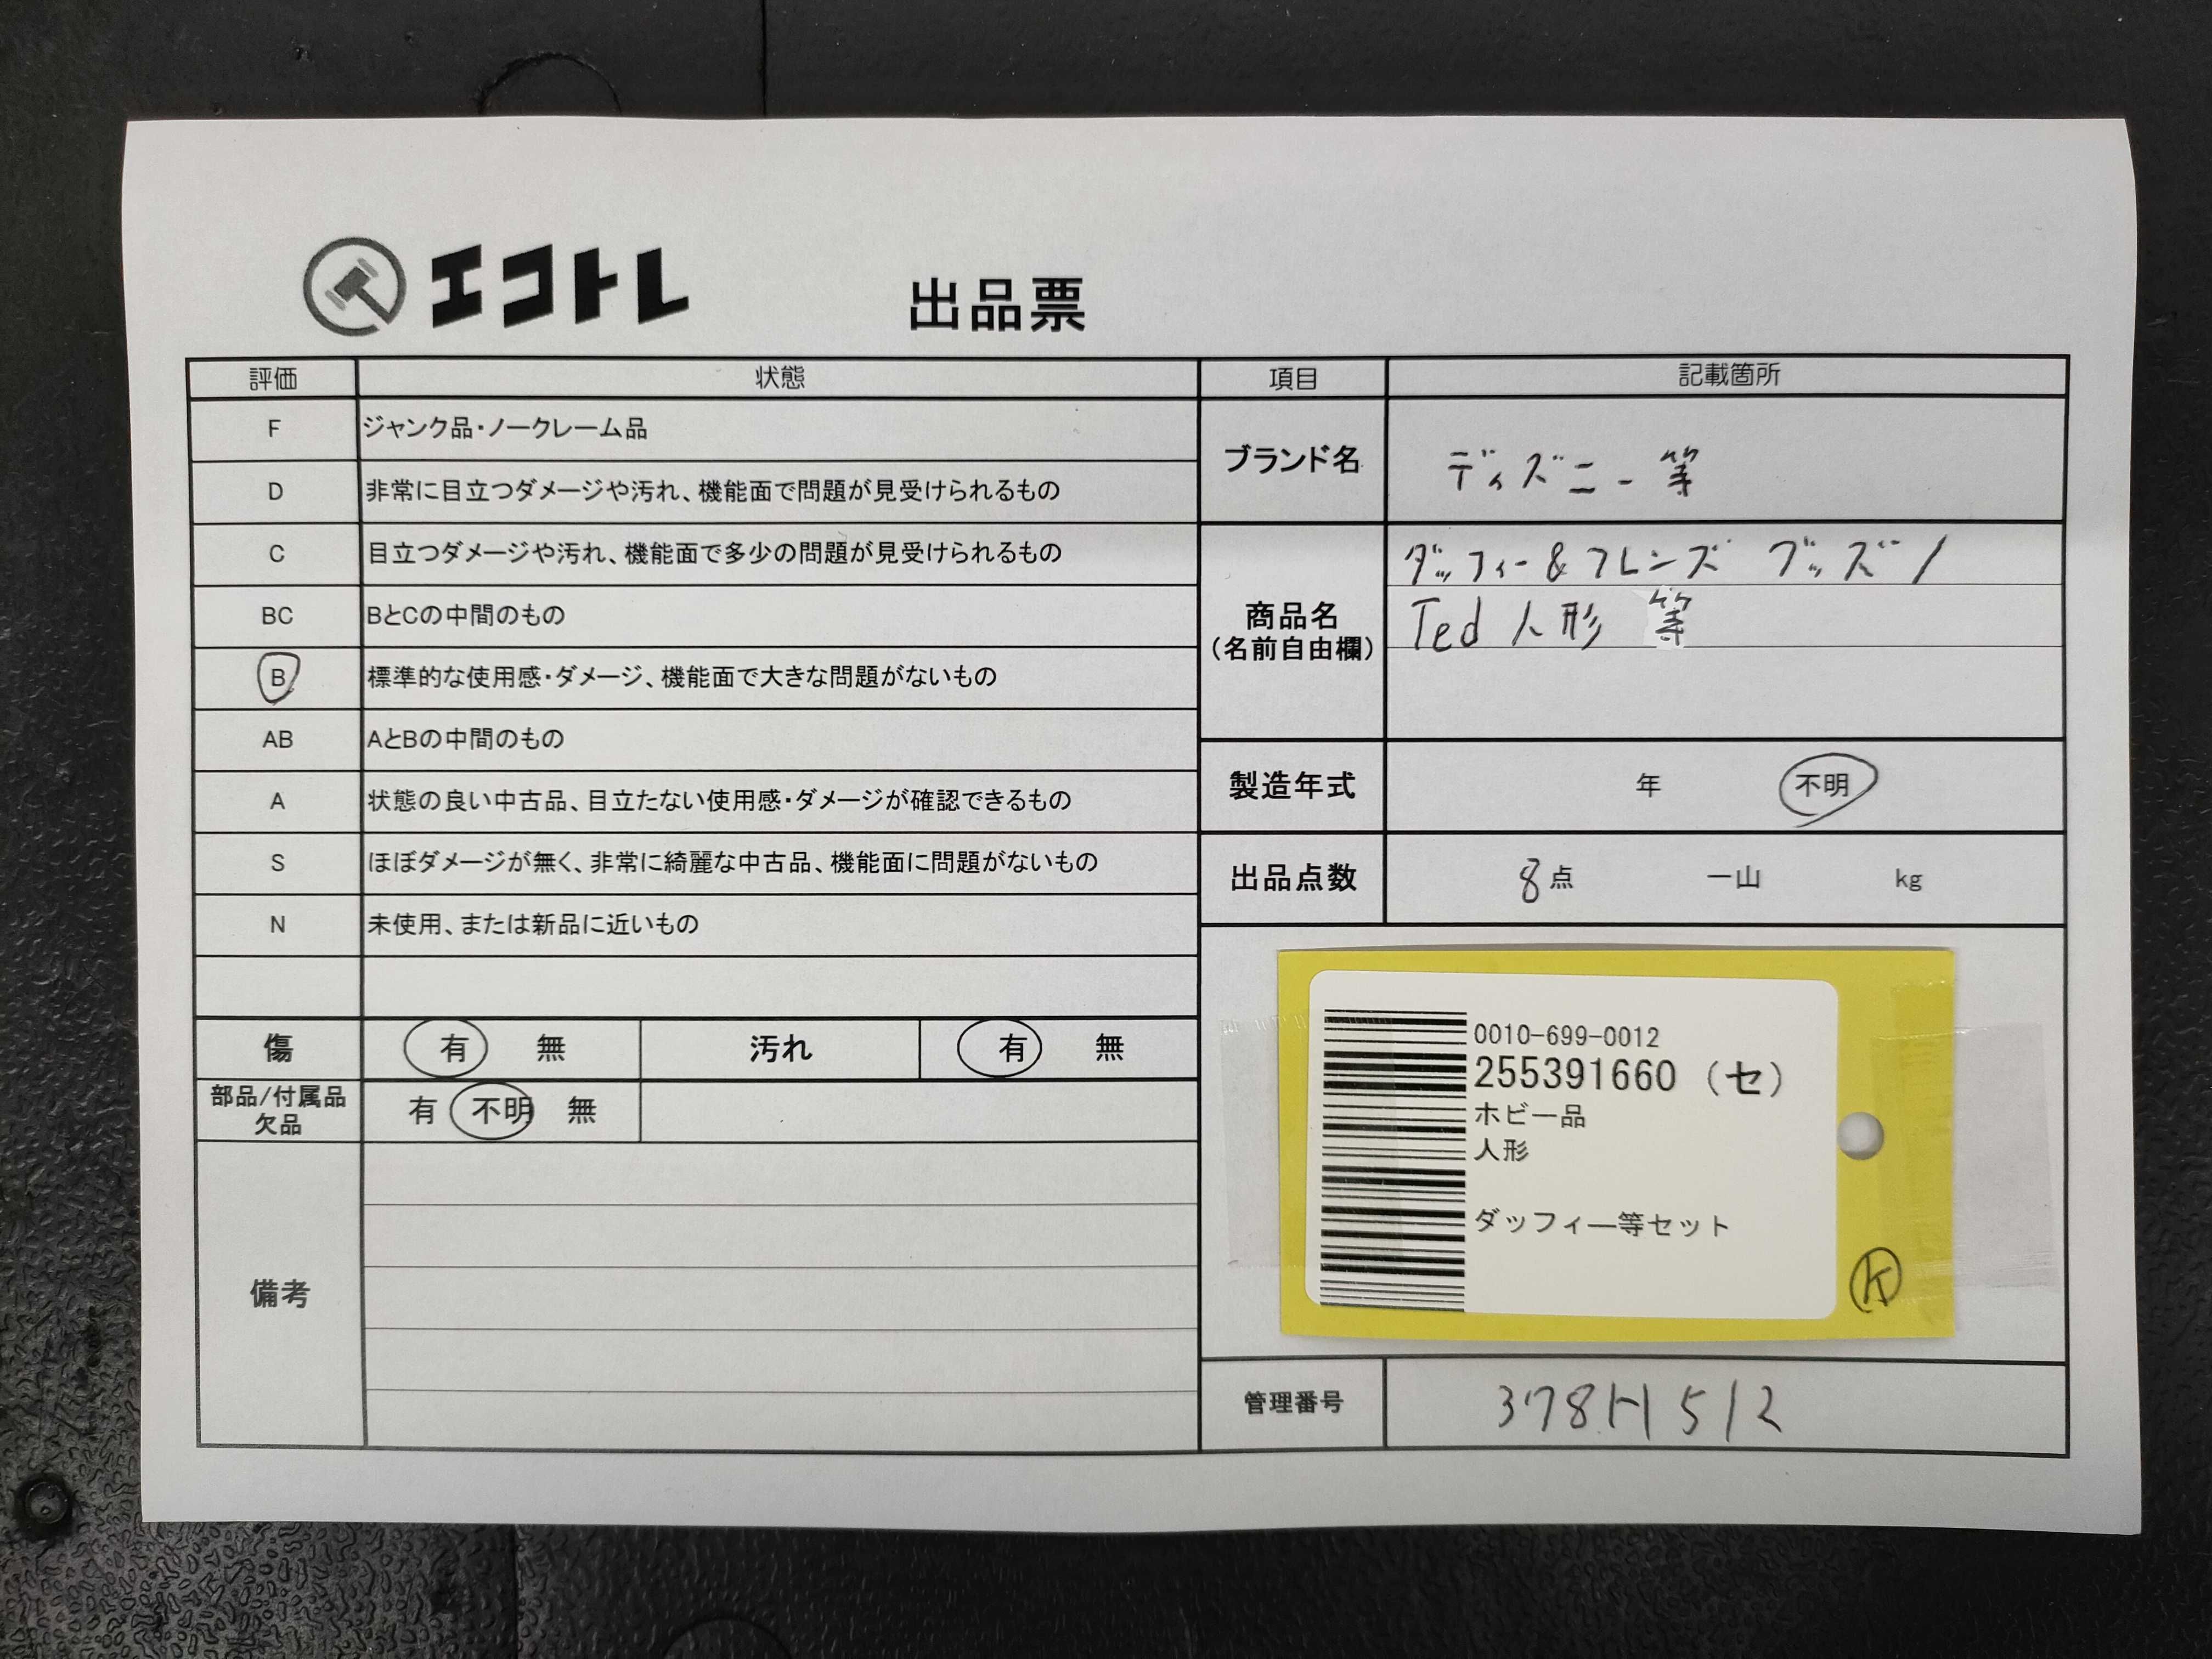 エコトレ
出品票
評価 状態
F ジャンク品・ノークレーム品
D 非常に目立つダメージや汚れ、機能面で問題が見受けられるもの
C 目立つダメージや汚れ、機能面で多少の問題が見受けられるもの
BC BとCの中間のもの
B 標準的な使用感・ダメージ、機能面で大きな問題がないもの
AB AとBの中間のもの
A 状態の良い中古品、目立たない使用感・ダメージが確認できるもの
S ほぼダメージが無く、非常に綺麗な中古品、機能面に問題がないもの
N 未使用、または新品に近いもの
傷 有 無 汚れ 有 無
部品/付属品
欠品 有 不明 無
備考
項目 記載箇所
ブランド名 ディズニー等
商品名
(名前自由欄)
ダッフィー&フレンズ グッズ/
Ted 人形 等
製造年式 年 不明
出品点数 8点 一山 kg
0010-699-0012
255391660 (セ)
ホビー品
人形
ダッフィー等セット
管理番号 378H512